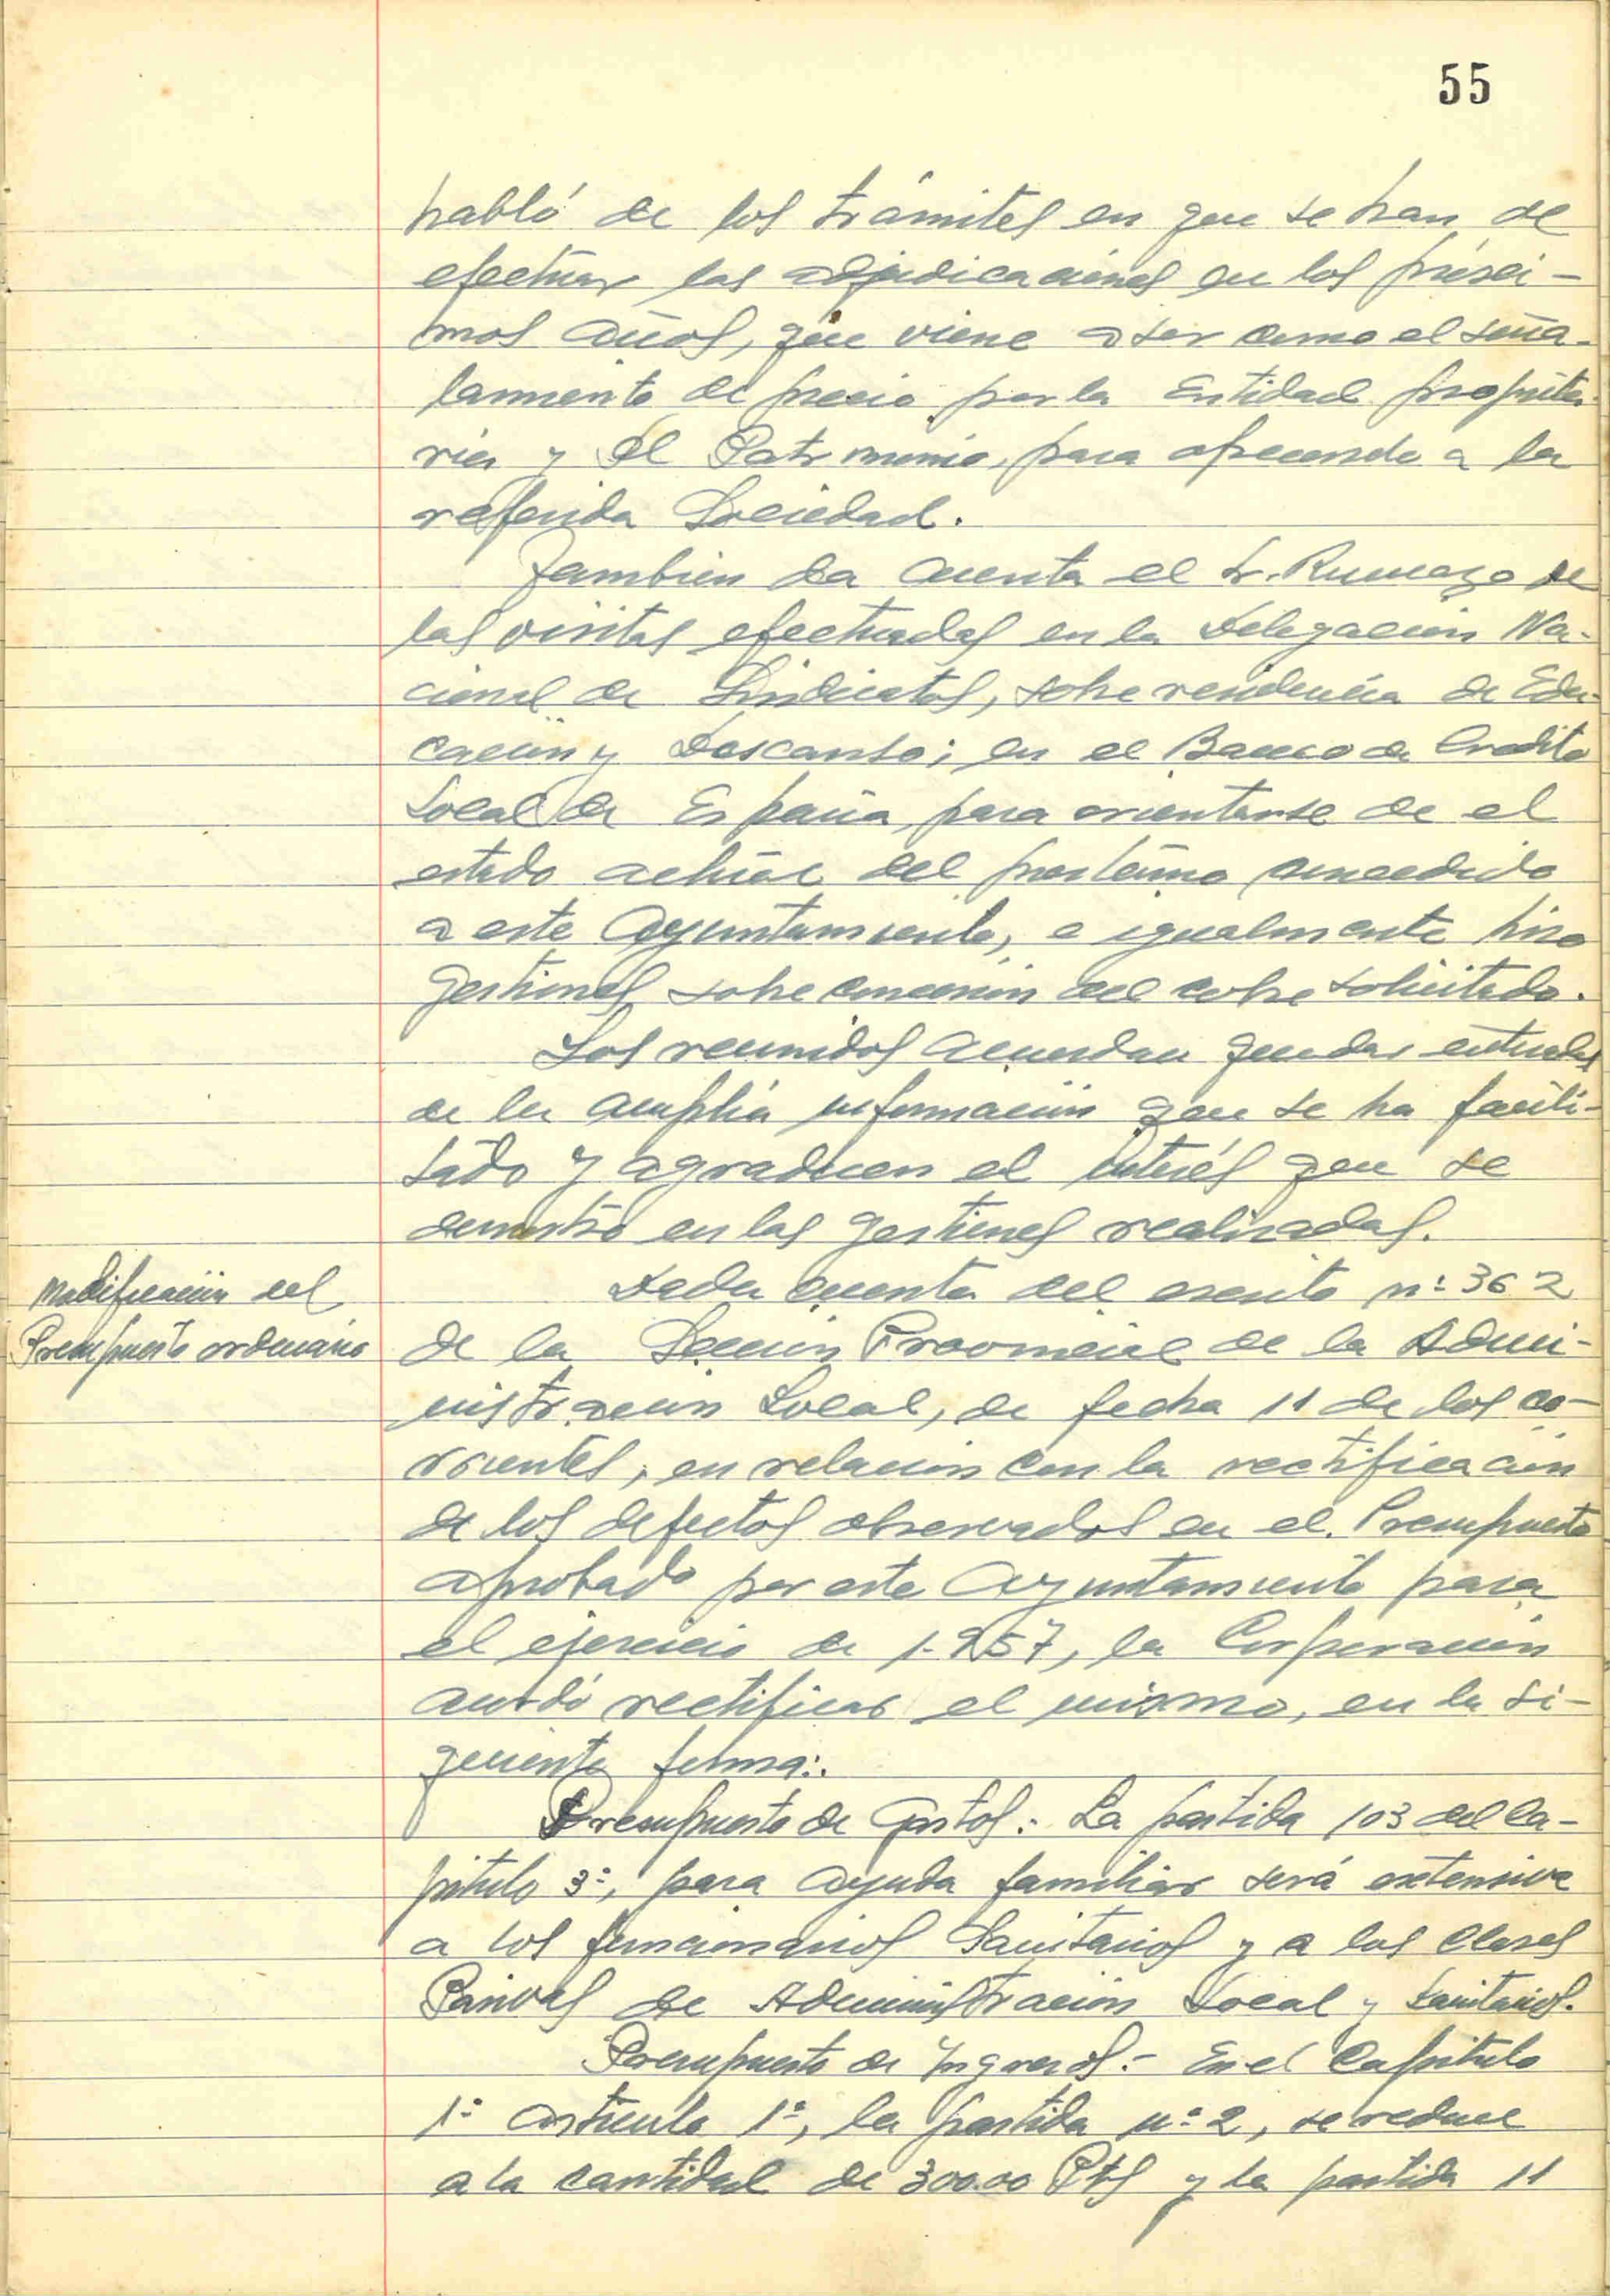 55
habló de los trámites en que se han de
efectuar las adjudicaciones en los próxi-
mos años, que viene a ser como el seña-
lamiento de precio por la Entidad propieta-
ria y el Patrimonio, para ofrecerselo a la
referida Sociedad.
Tambien da cuenta el Sr. Rumazo de
las visitas efectuadas en la Delegación Na-
cional de Sindicatos, sobre residencia de Edu-
cación y Descanso; en el Banco de Credito
Local de España, para orientarse de el
estado actual del prestamo concedido
a este Ayuntamiento, e igualmente hizo
gestiones sobre concesión del cobre solicitado.
Los reunidos acuerdan quedar enterados
de la amplia información que se ha facili-
tado y agradecen el interés que se
demostró en las gestiones realizadas.
Modificación del
Presupuesto ordinario
Dada cuenta del escrito nº 362
de la Sección Provincial de la Admi-
nistración Local, de fecha 11 de los co-
rrientes, en relación con la rectificación
de los defectos observados en el Presupuesto
aprobado por este Ayuntamiento para
el ejercicio de 1.957, la Corporación
acordó rectificar el mismo, en la si-
guiente forma:.
Presupuesto de Gastos:- La partida 103 del Ca-
pitulo 3º, para ayuda familiar será extensiva
a los funcionarios Sanitarios y a las Clases
Pasivas de Administración Local y Sanitarios.
Presupuesto de Yngresos:- En el Capitulo
1º articulo 1º, la partida nº 2, se reduce
a la cantidad de 300.00 Pts y la partida 11